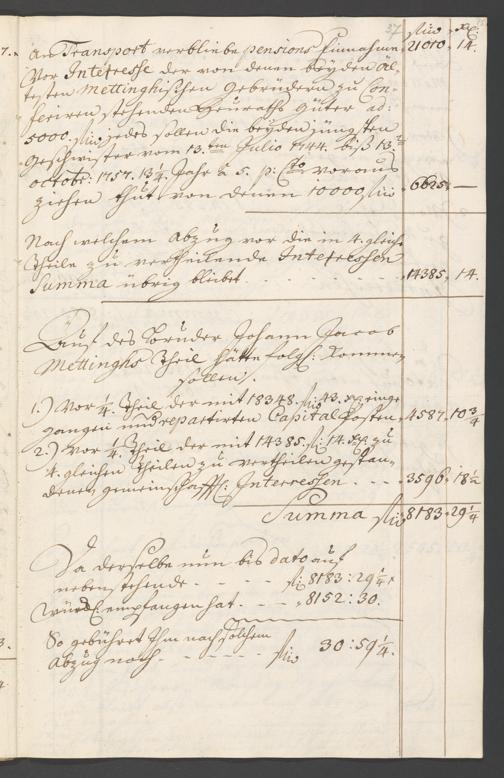 37
fl. xr.
An Transport verbliebe pensions Einnahme 21010. 14.
Vor Interesse der von denen beyden äl-
testen Mettinghischen Gebrüdern zu Con-
feriren stehenden Heuraths Güter ad:
5000. fl. jedes sollen die beyden jüngsten
Geschwister vom 13.ten Julio 1744. biß 13.
octobr: 1757. 13 1/4. Jahr à 5. p: Cto voraus
ziehen thut von denen 10000 fl. 6625. —
Nach welchem Abzug vor die in 4. gleiche
Theile zu vertheilende Interessen
Summa übrig bleibet . . . . 14385. 14.
Auf des Bruder Johann Jacob
Mettinghs Theil hätte folgl: Kommen
sollen.
1.) Vor 1/4. Theil der mit 18348. fl. 43. xr. einge-
gangen und repartirten Capital Posten 4587. 10 3/4
2.) Vor 1/4. Theil der mit 14385. fl. 14. xr. zu
4. gleichen Theilen zu vertheilen gestan-
denen gemeinschafftl: Interessen . . . 3596. 18 1/2
Summa fl. 8183. 29 1/4
Da derselbe nun bis dato auf
nebenstehende . . . . fl. 8183: 29 1/4.
würckl: empfangen hat . . . 8152: 30.
So gebühret Ihm nach solchem
Abzug noch . . . . . fl. 30: 59 1/4.